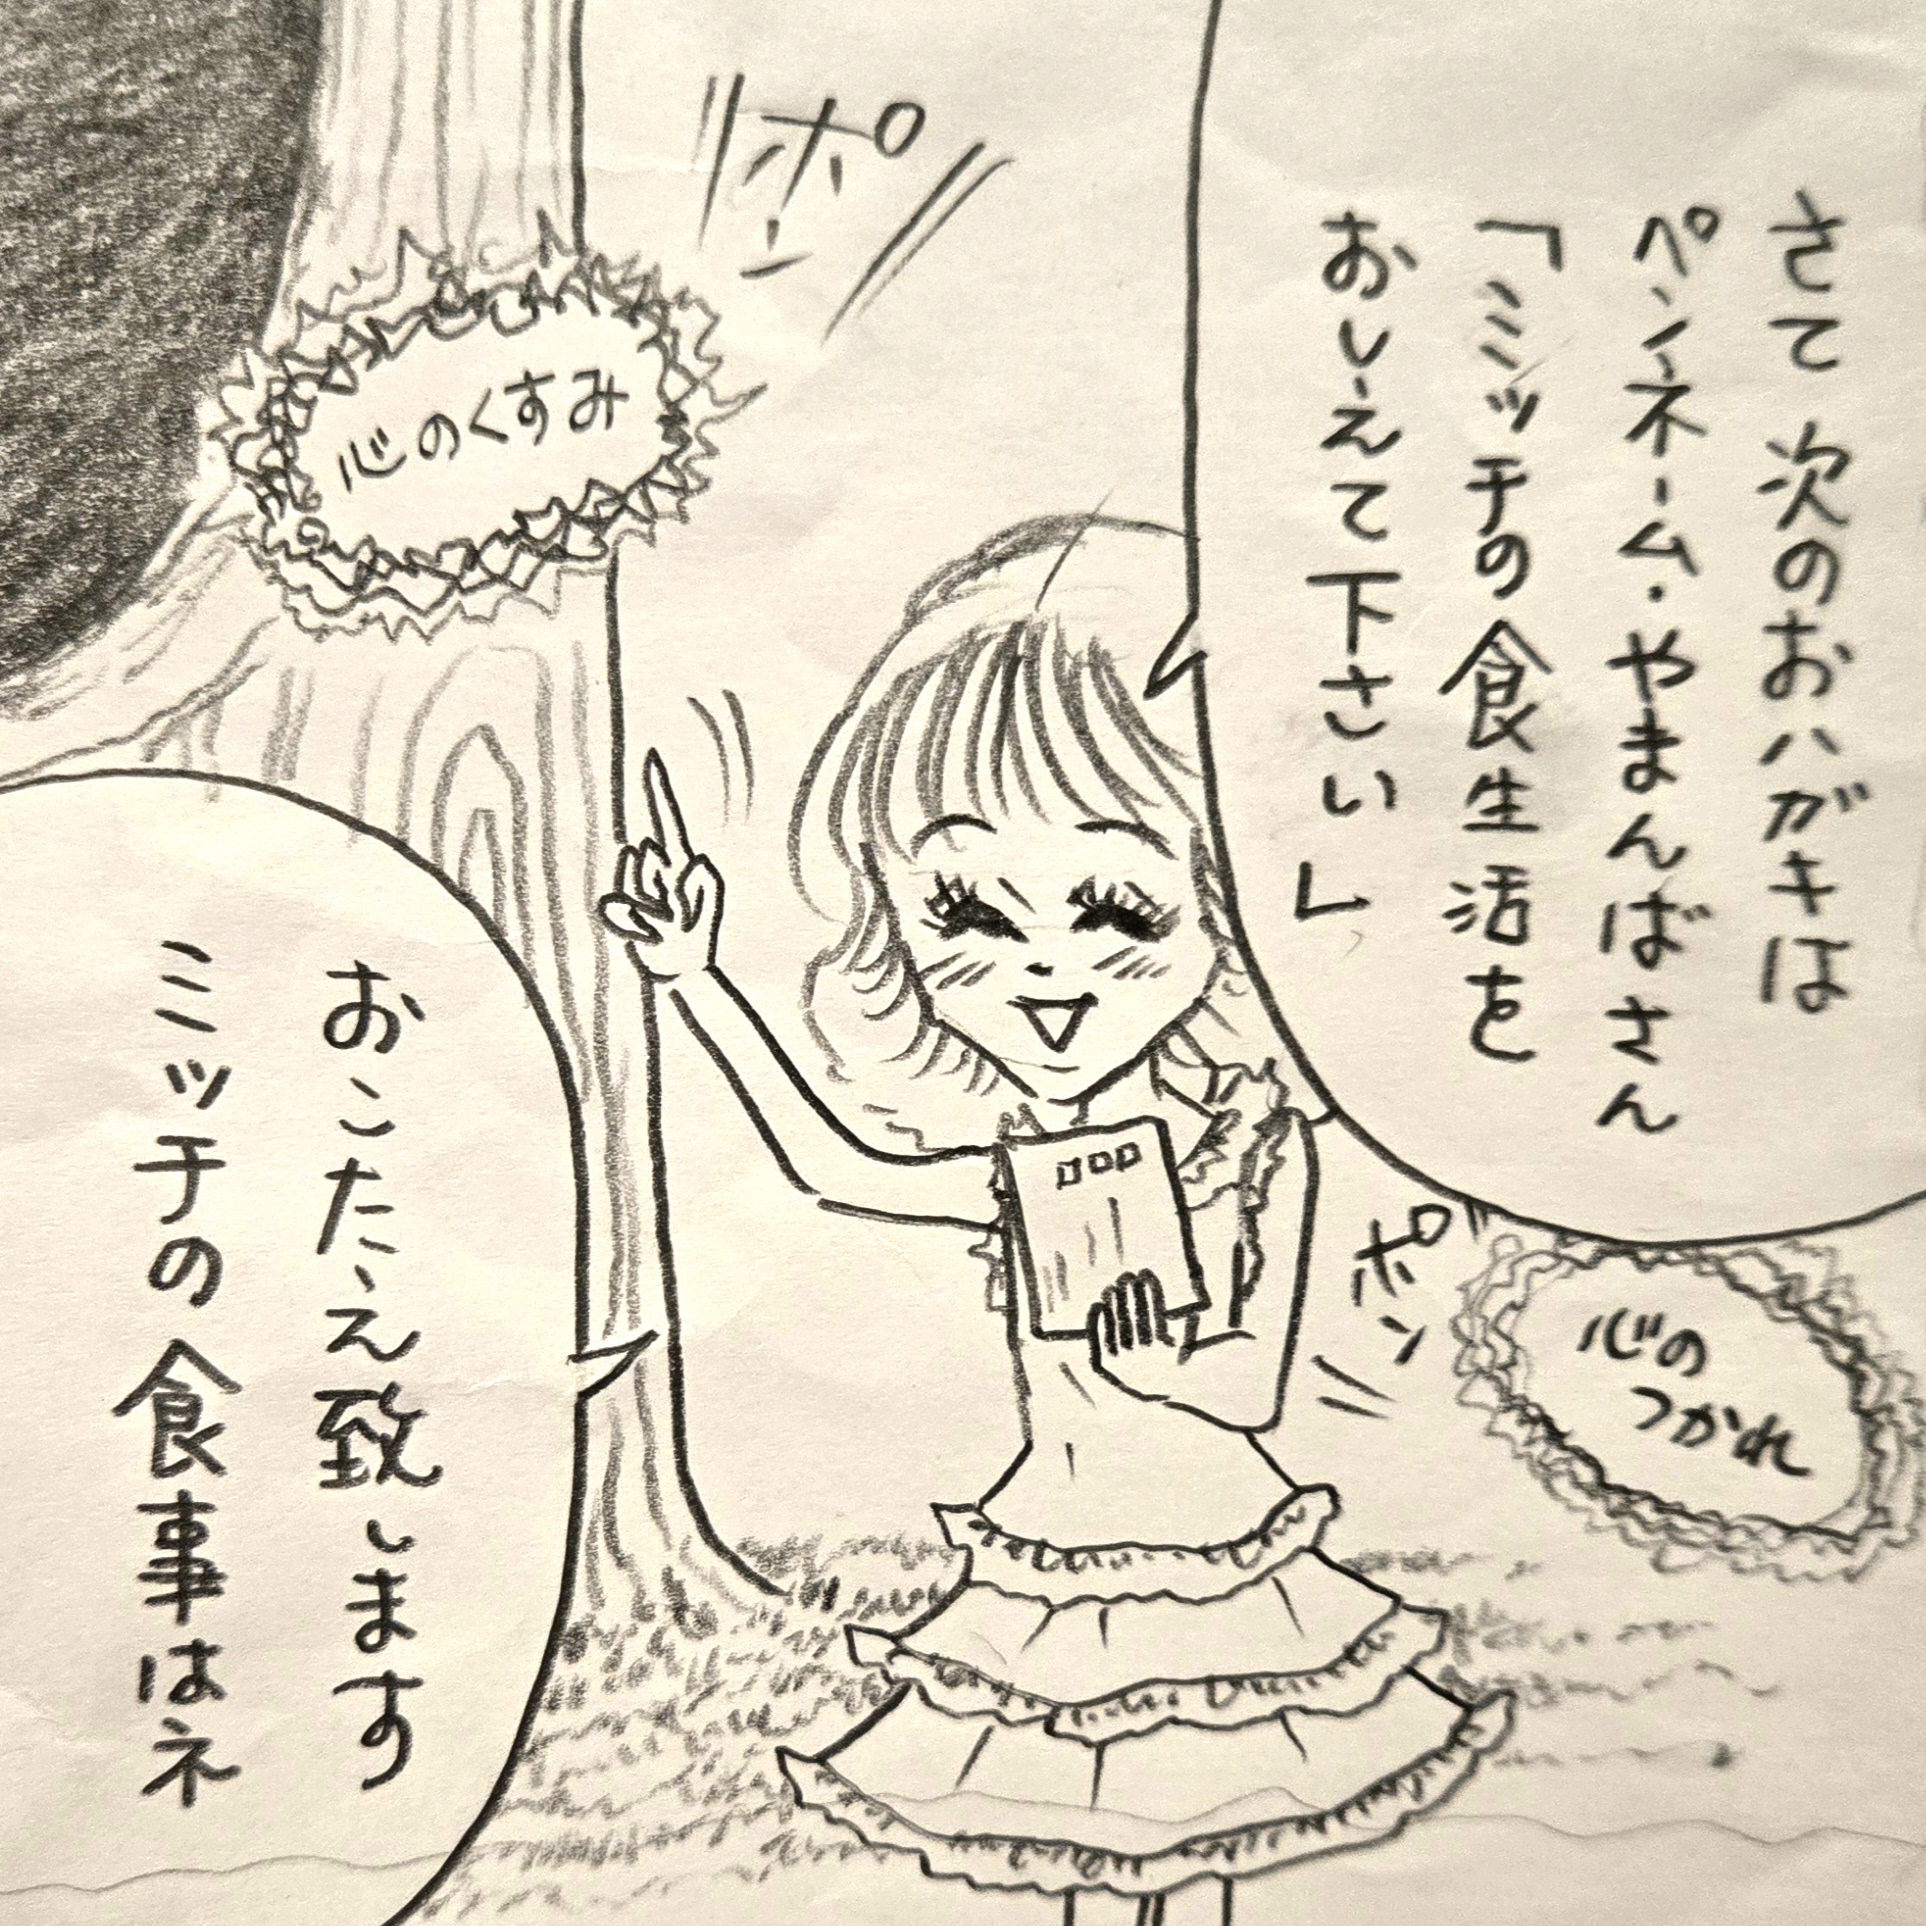 さて 次のおハガキは
ペンネーム・やまんばさん
「ミッチの食生活を
おしえて下さい」
ポン
心のくすみ
ポン
心の
つかれ
おこたえ致します
ミッチの食事はネ